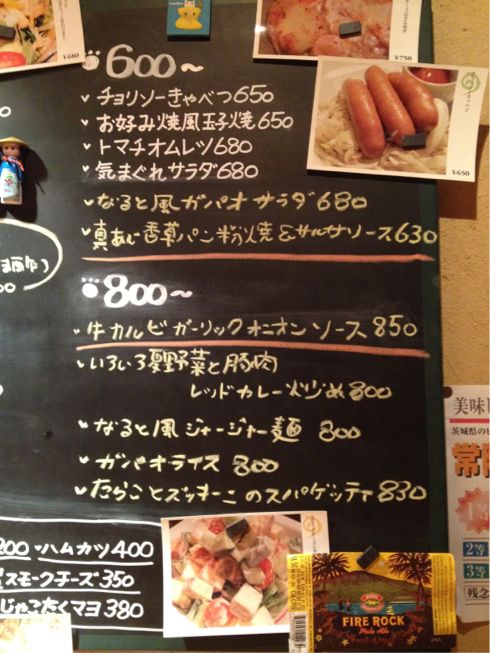 ¥680
¥750
600~
チョリソーきゃべつ650
お好み焼風玉子焼650
トマチオムレツ680
気まぐれサラダ680
なると風ガパオサラダ680
真あじ香草パン粉焼&サルサソース630
¥650
800~
牛カルビガーリックオニオンソース850
いろいろ夏野菜と豚肉
レッドカレー炒め800
なると風ジャージャー麺 800
ガパオライス 800
たらことズッキーニのスパゲッティ830
200・ハムカツ400
スモークチーズ350
じゃこたくマヨ380
美味し
茨城県の
常陸
2等
3等
残念
KONA
FIRE ROCK
Pale Ale